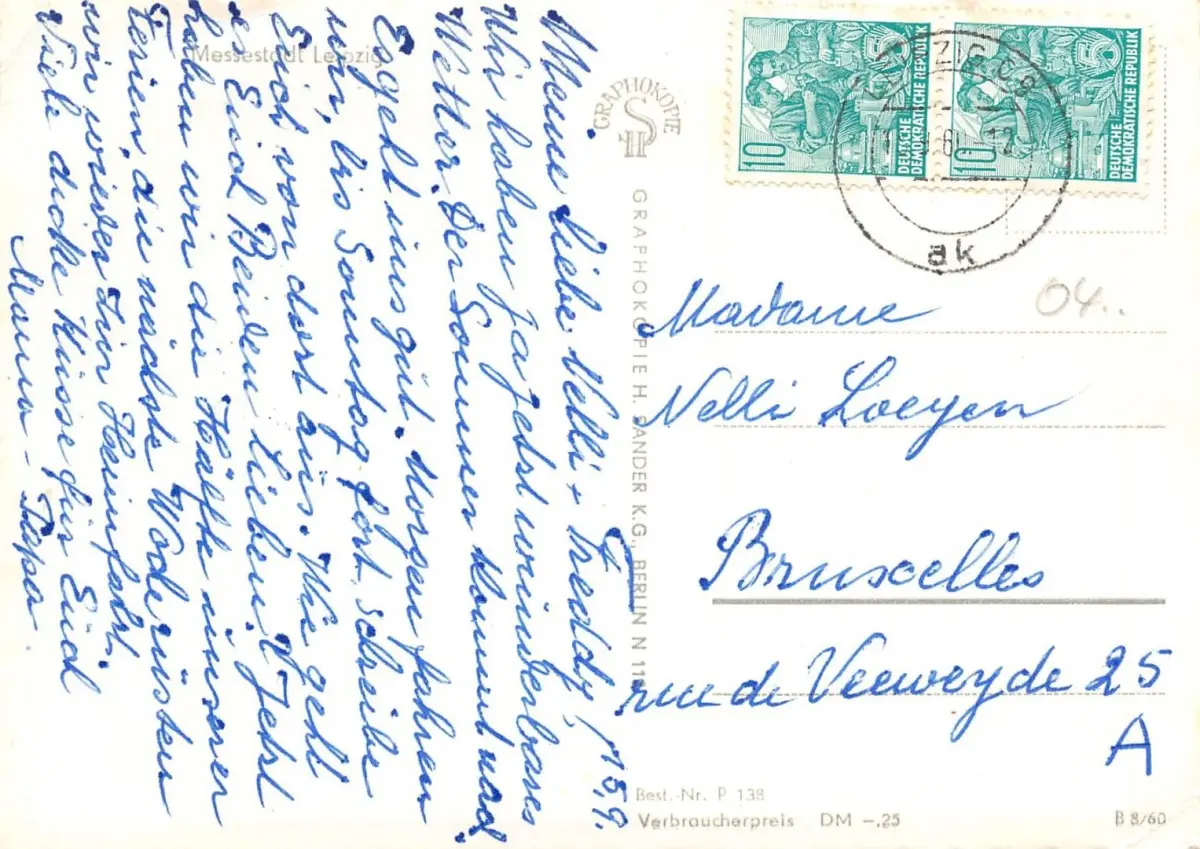 Messestadt Leipzig
Meine liebe Nelli + Freddy! 15.9.
Wir haben ja jetzt wunderbares
Wetter. Der Sommer kommt noch.
Es geht uns gut. Morgen fahren
wir, bis Sonntag fort. Schreibe
Euch von dort aus. Wie geht
es Euch Beiden Lieben? Jetzt
haben wir die Hälfte unserer
Ferien, die nächste Woche rüsten
wir wieder zur Heimfahrt.
Viele dicke Küsse für Euch
Mama - Papa
GRAPHOKOPIE
SH
GRAPHOKOPIE H. SANDER K.G., BERLIN N 11
10 5 DEUTSCHE DEMOKRATISCHE REPUBLIK
10 5 DEUTSCHE DEMOKRATISCHE REPUBLIK
LEIPZIG C 2
ak
04..
Madame
Nelli Loeyen
Bruxelles
rue de Veeweyde 25
A
Best.-Nr. P 138
Verbraucherpreis DM -.25
B 8/60